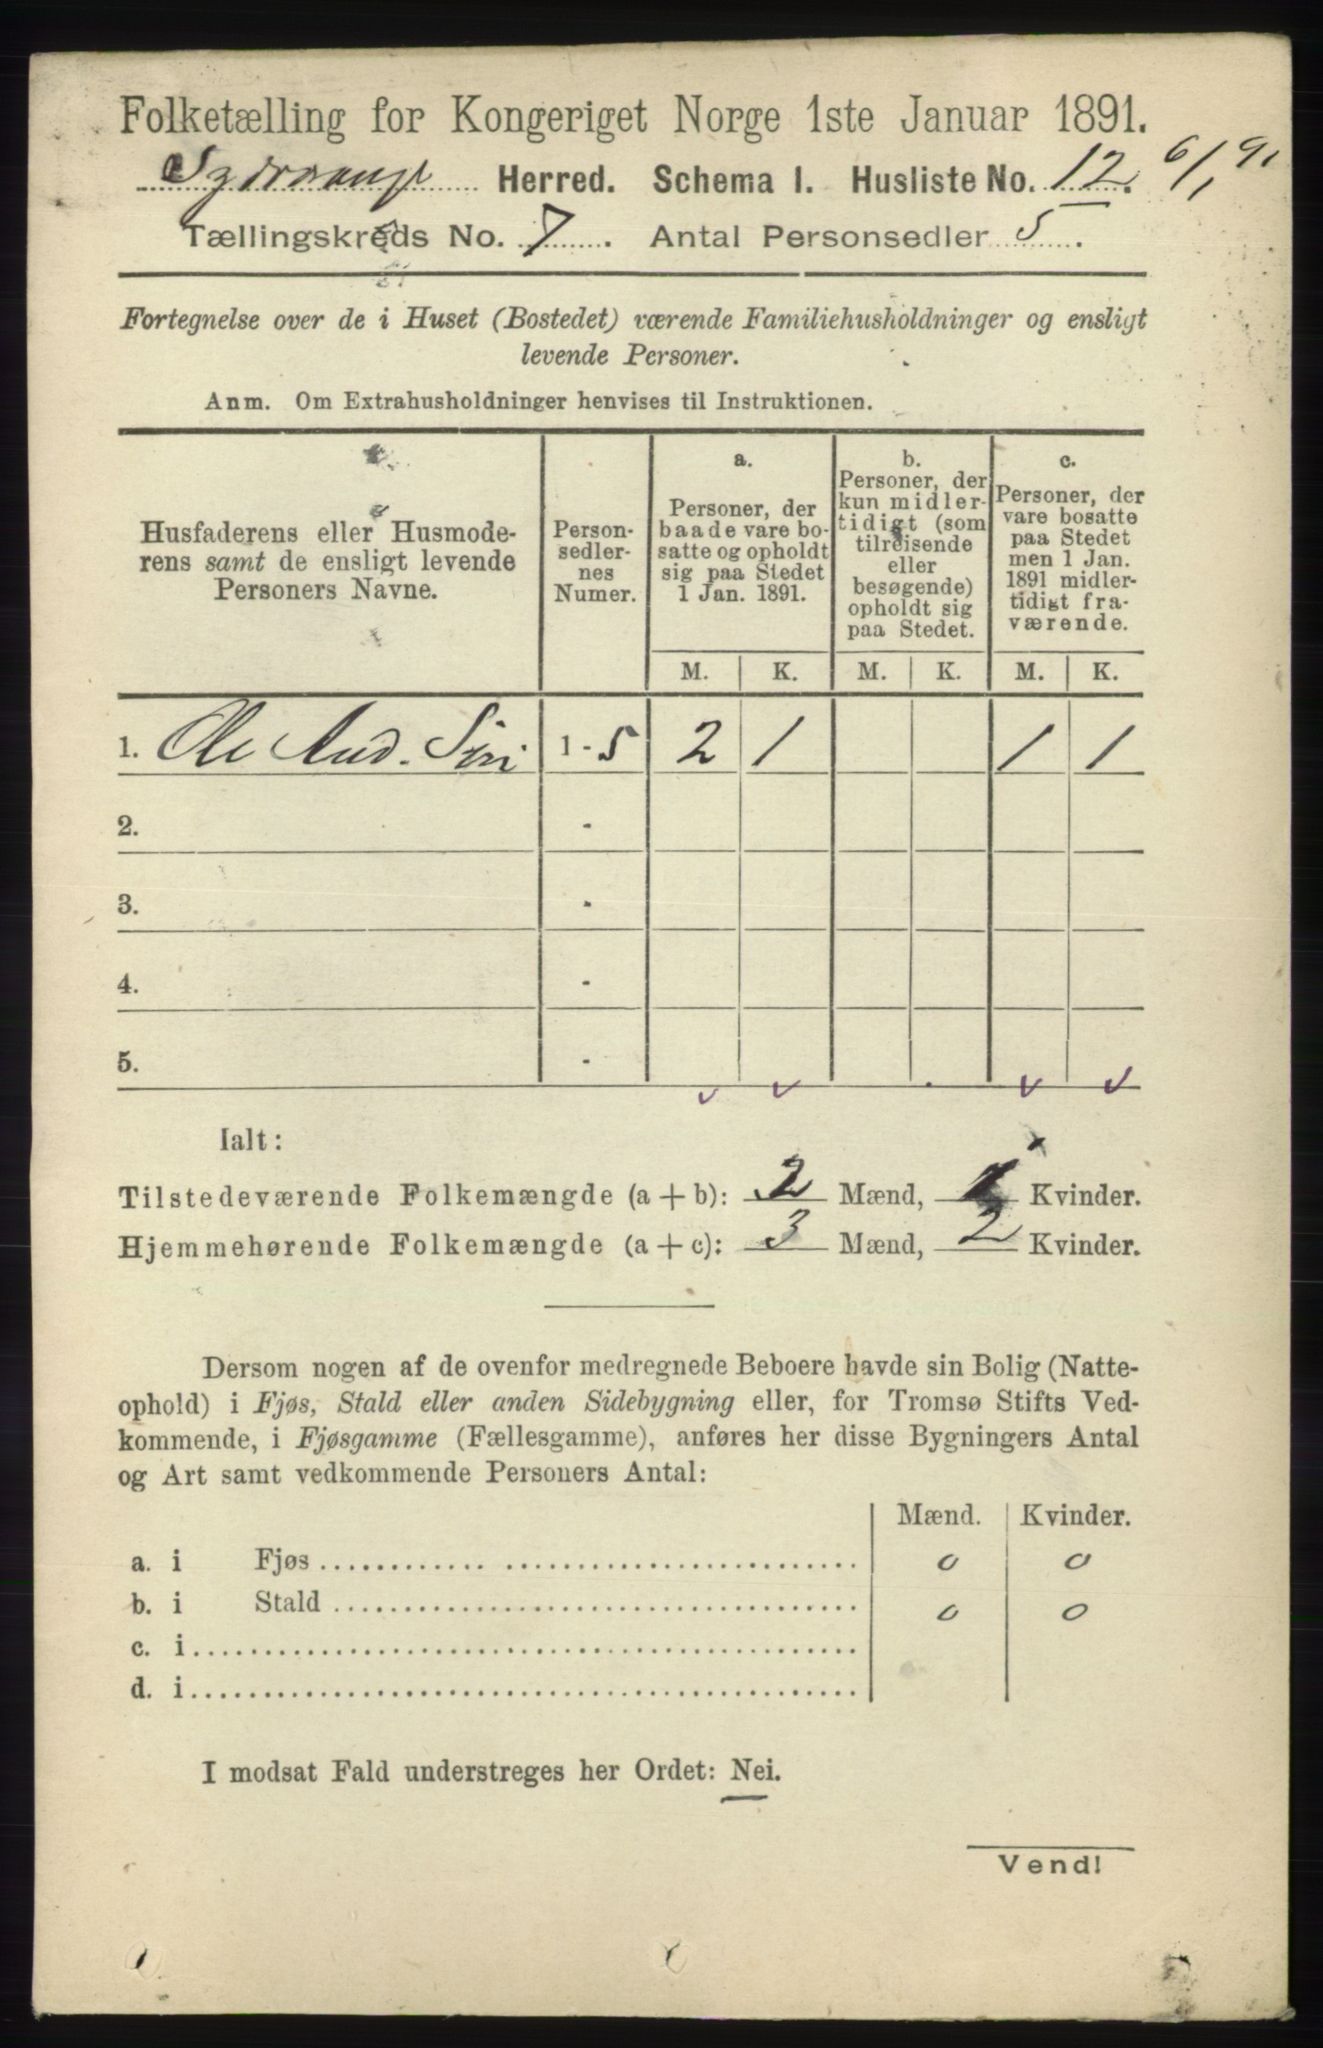 Folketælling for Kongeriget Norge 1ste Januar 1891.
Sydvaranger Herred. Schema I. Husliste No. 12. 6/1 91
Tællingskreds No. 7. Antal Personsedler 5.
Fortegnelse over de i Huset (Bostedet) værende Familiehusholdninger og ensligt
levende Personer.
Anm. Om Extrahusholdninger henvises til Instruktionen.
Husfaderens eller Husmode-
rens samt de ensligt levende
Personers Navne.
Person-
sedler-
nes
Numer.
a.
Personer, der
baade vare bo-
satte og opholdt
sig paa Stedet
1 Jan. 1891.
b.
Personer, der
kun midler-
tidigt (som
tilreisende
eller
besøgende)
opholdt sig
paa Stedet.
c.
Personer, der
vare bosatte
paa Stedet
men 1 Jan.
1891 midler-
tidigt fra-
værende.
M. K. M. K. M. K.
1. Ole And. Siri 1 - 5 2 1 1 1
2. -
3. -
4. -
5. -
Ialt:
Tilstedeværende Folkemængde (a + b): 2 Mænd, 1 Kvinder.
Hjemmehørende Folkemængde (a + c): 3 Mænd, 2 Kvinder.
Dersom nogen af de ovenfor medregnede Beboere havde sin Bolig (Natte-
ophold) i Fjøs, Stald eller anden Sidebygning eller, for Tromsø Stifts Ved-
kommende, i Fjøsgamme (Fællesgamme), anføres her disse Bygningers Antal
og Art samt vedkommende Personers Antal:
Mænd. Kvinder.
a. i Fjøs 0 0
b. i Stald 0 0
c. i
d. i
I modsat Fald understreges her Ordet: Nei.
Vend!